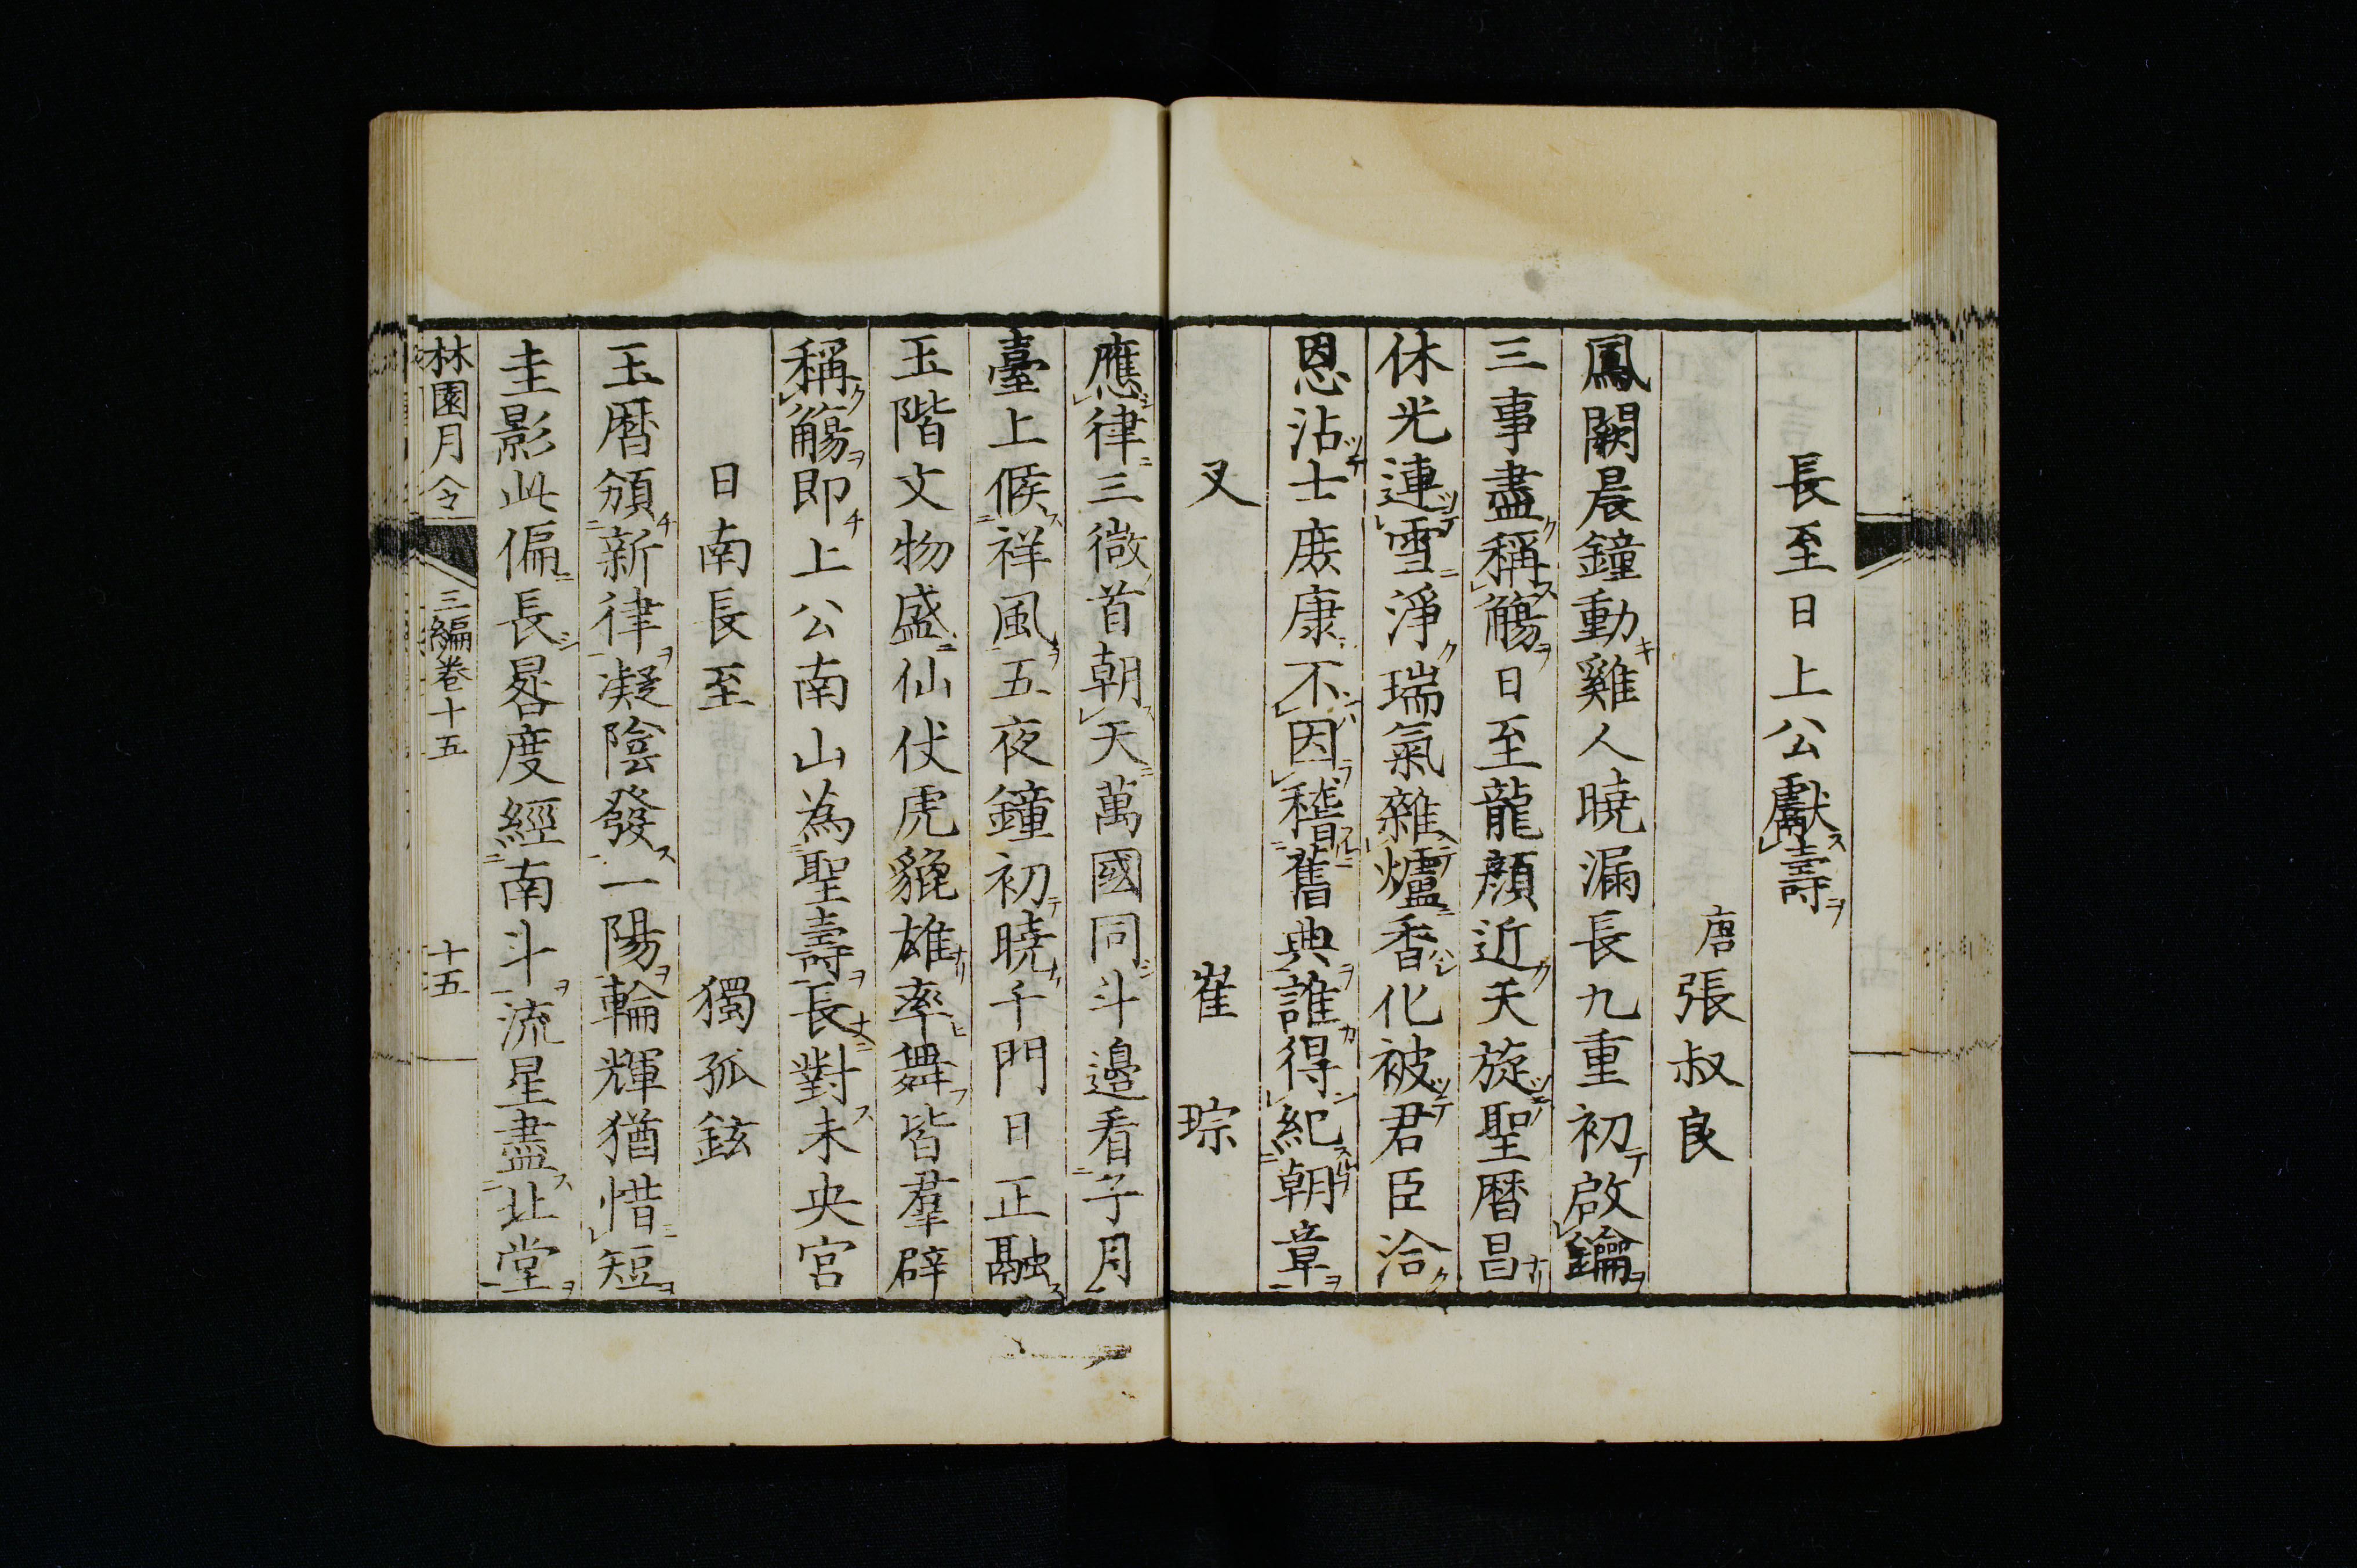 長至日上公獻壽
唐張叔良
鳳闕晨鐘動雞人曉漏長九重初啟鑰
三事盡稱觴日至龍顏近天旋聖暦昌
休光連雪淨瑞氣雜爐香化被君臣洽
恩沾士庶康不因稽舊典誰得紀朝章
又 崔琮
應律三微首朝天萬國同斗邉看子月
臺上候祥風五夜鐘初曉千門日正融
玉階文物盛仙仗虎貔雄率舞皆羣辟
稱觴即上公南山為聖壽長對未央宮
日南長至 獨孤鉉
玉暦頒新律凝陰發一陽輪輝猶惜短
圭影此偏長晷度經南斗流星盡北堂
林園月令 三編卷十五 十五